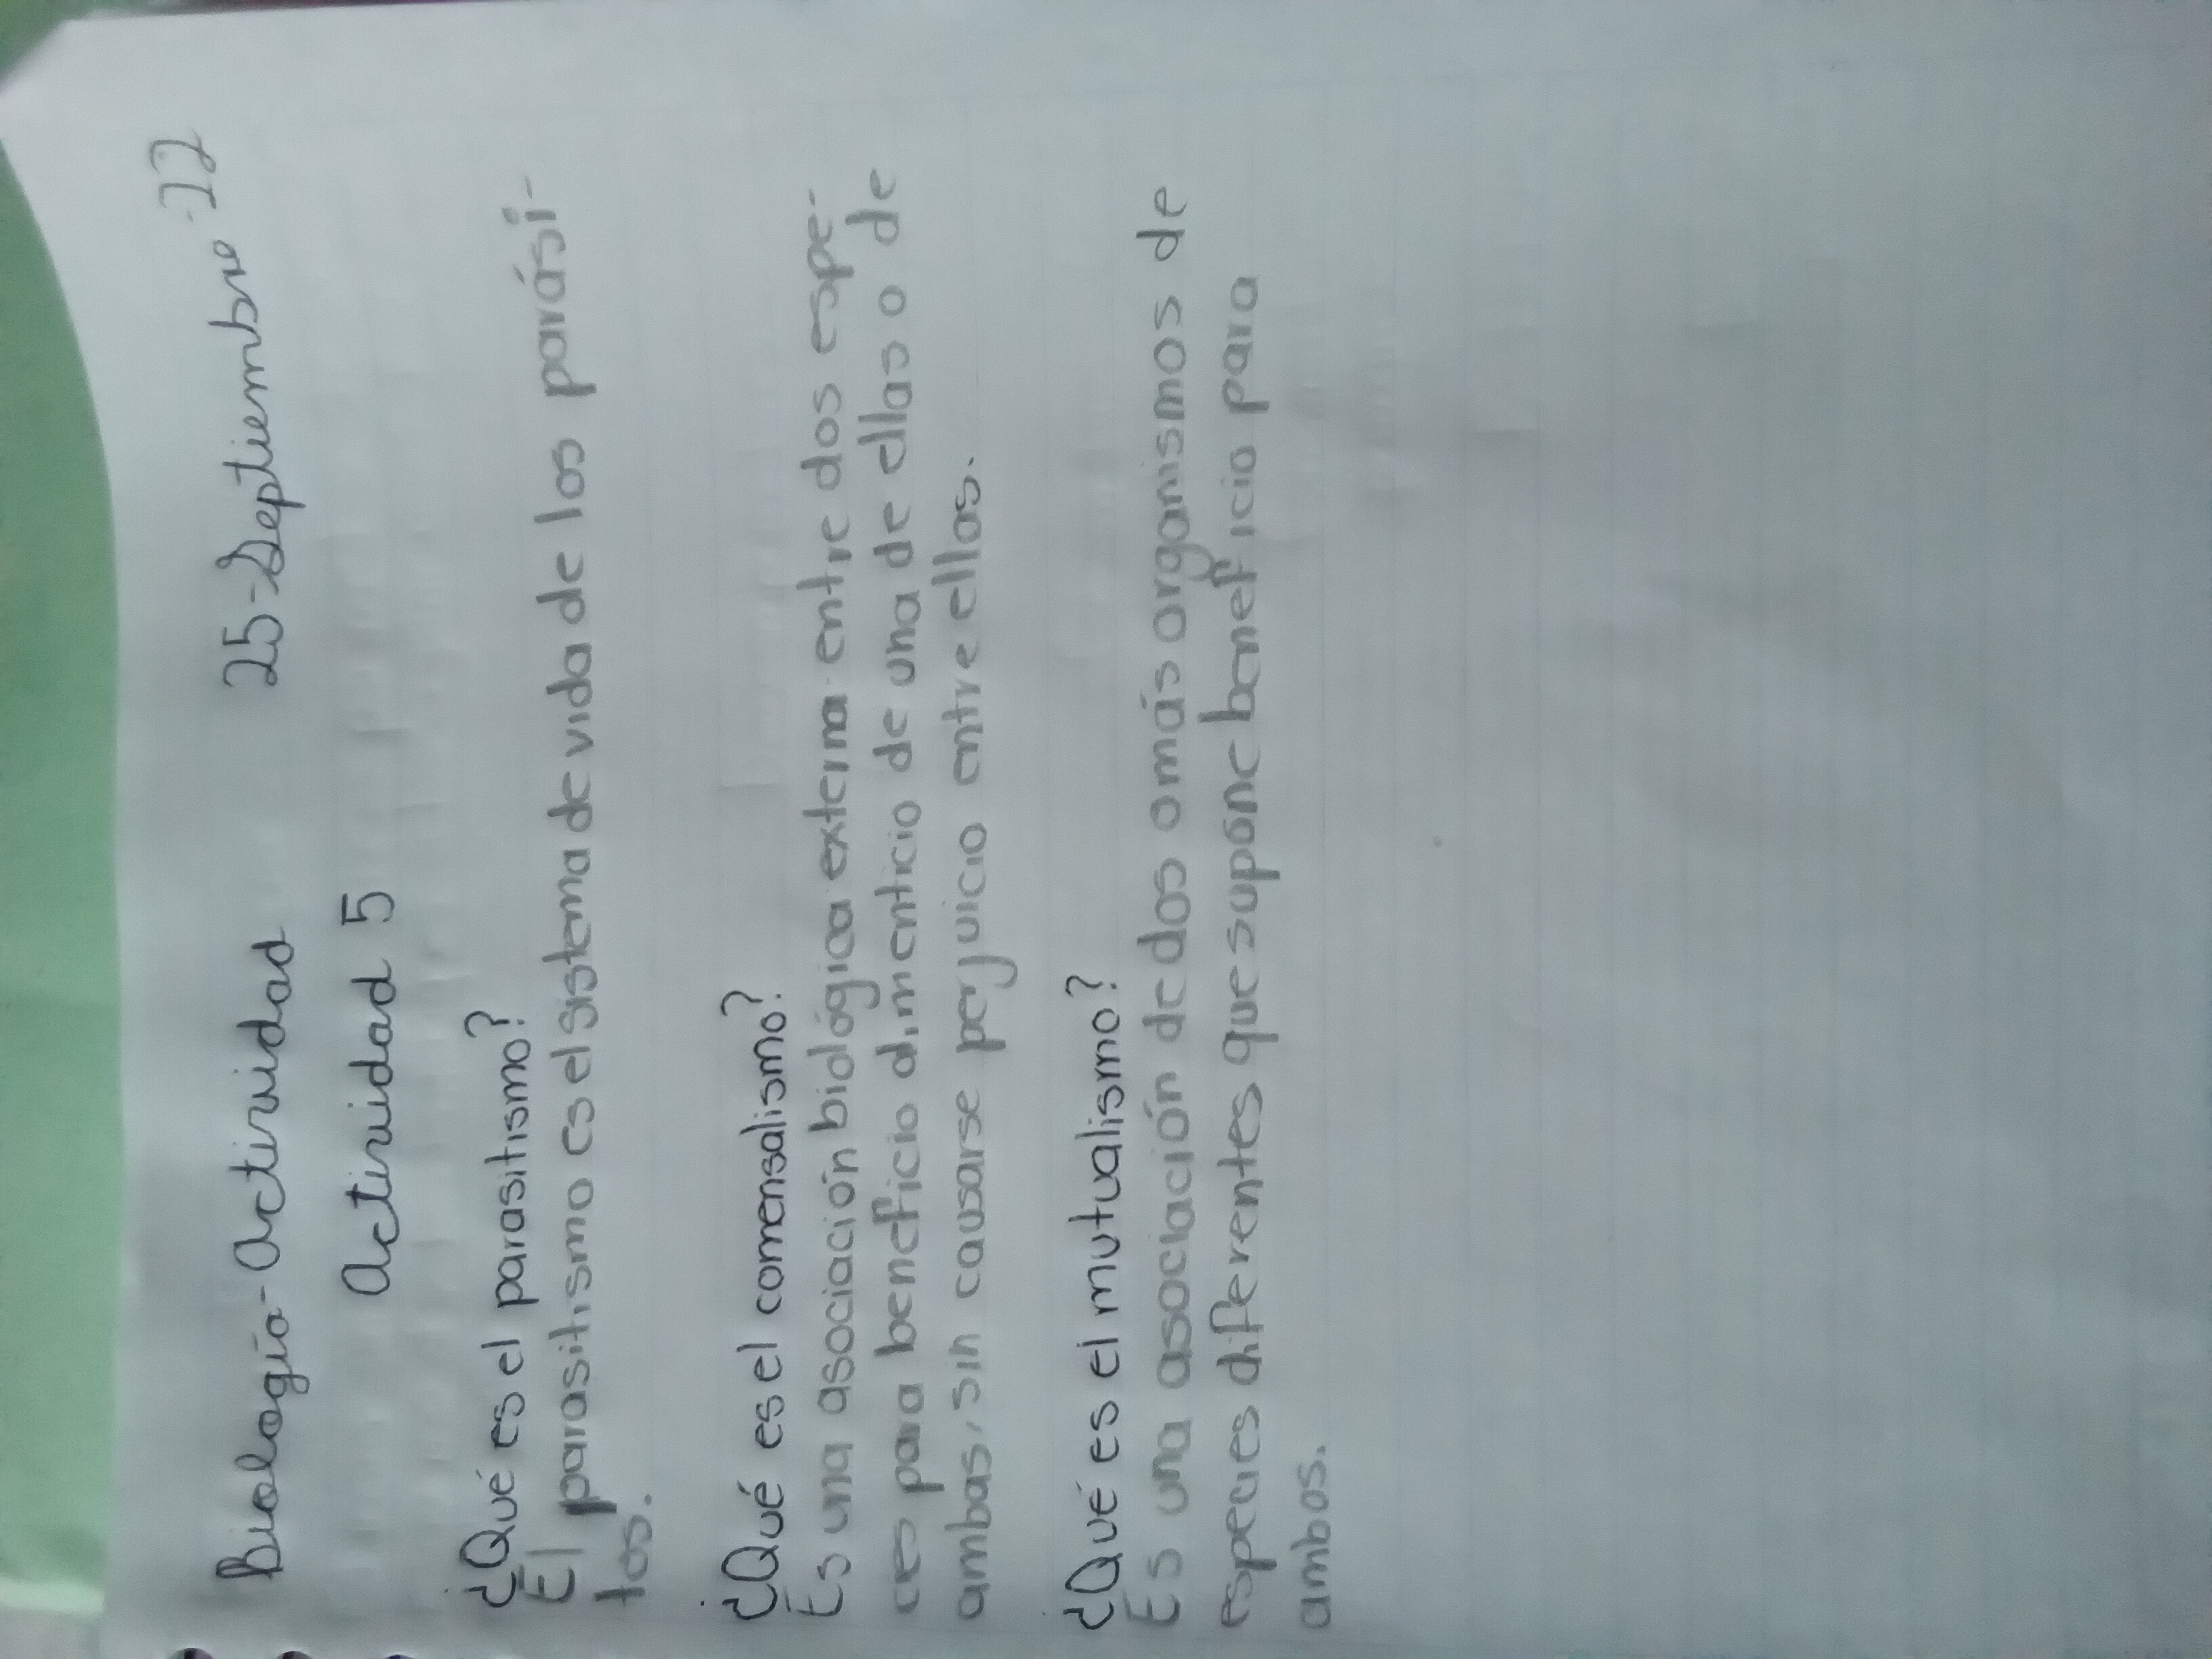 Biología-Actividad 25-Septiembre-22
Actividad 5
¿Qué es el parasitismo?
El parasitismo es el sistema de vida de los parási-
tos.
¿Qué es el comensalismo?
Es una asociación biológica externa entre dos espe-
cies para beneficio alimenticio de una de ellas o de
ambas, sin causarse perjuicio entre ellas.
¿Qué es el mutualismo?
Es una asociación de dos o más organismos de
especies diferentes que supone beneficio para
ambos.